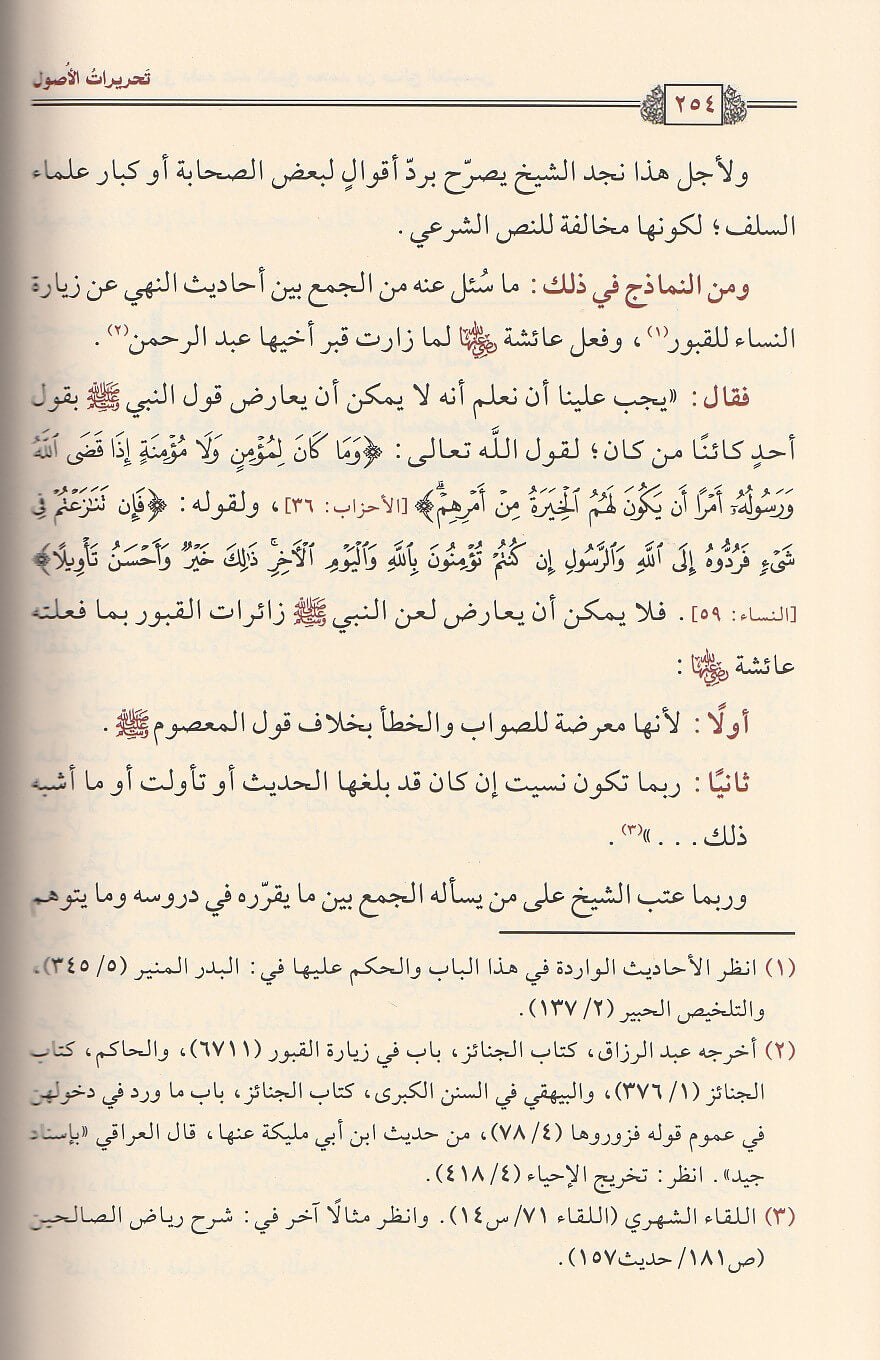 تَحريراتُ الأُصول
٢٥٤
ولأجل هذا نجد الشيخ يصرّح بردّ أقوالٍ لبعض الصحابة أو كبار علماء
السلف؛ لكونها مخالفة للنص الشرعي.
ومن النماذج في ذلك: ما سُئل عنه من الجمع بين أحاديث النهي عن زيارة
النساء للقبور(١)، وفعل عائشة رضي الله عنها لما زارت قبر أخيها عبد الرحمن(٢).
فقال: «يجب علينا أن نعلم أنه لا يمكن أن يعارض قول النبي ﷺ بقول
أحدٍ كائنًا من كان؛ لقول اللَّه تعالى: ﴿وَمَا كَانَ لِمُؤْمِنٍ وَلَا مُؤْمِنَةٍ إِذَا قَضَى ٱللَّهُ
وَرَسُولُهُۥٓ أَمْرًا أَن يَكُونَ لَهُمُ ٱلْخِيَرَةُ مِنْ أَمْرِهِمْۗ﴾ [الأحزاب: ٣٦]، ولقوله: ﴿فَإِن تَنَٰزَعْتُمْ فِى
شَىْءٍ فَرُدُّوهُ إِلَى ٱللَّهِ وَٱلرَّسُولِ إِن كُنتُمْ تُؤْمِنُونَ بِٱللَّهِ وَٱلْيَوْمِ ٱلْـَٔاخِرِۚ ذَٰلِكَ خَيْرٌ وَأَحْسَنُ تَأْوِيلًا﴾
[النساء: ٥٩]. فلا يمكن أن يعارض لعن النبي ﷺ زائرات القبور بما فعلته
عائشة رضي الله عنها:
أولًا: لأنها معرضة للصواب والخطأ بخلاف قول المعصوم ﷺ.
ثانيًا: ربما تكون نسيت إن كان قد بلغها الحديث أو تأولت أو ما أشبه
ذلك...»(٣).
وربما عتب الشيخ على من يسأله الجمع بين ما يقرّره في دروسه وما يتوهم
(١) انظر الأحاديث الواردة في هذا الباب والحكم عليها في: البدر المنير (٥/ ٣٤٥)،
والتلخيص الحبير (٢/ ١٣٧).
(٢) أخرجه عبد الرزاق، كتاب الجنائز، باب في زيارة القبور (٦٧١١)، والحاكم، كتاب
الجنائز (١/ ٣٧٦)، والبيهقي في السنن الكبرى، كتاب الجنائز، باب ما ورد في دخولهن
في عموم قوله فزوروها (٤/ ٧٨)، من حديث ابن أبي مليكة عنها، قال العراقي «بإسناد
جيد». انظر: تخريج الإحياء (٤/ ٤١٨).
(٣) اللقاء الشهري (اللقاء ٧١/ س١٤). وانظر مثالًا آخر في: شرح رياض الصالحين
(ص١٨١/ حديث١٥٧).